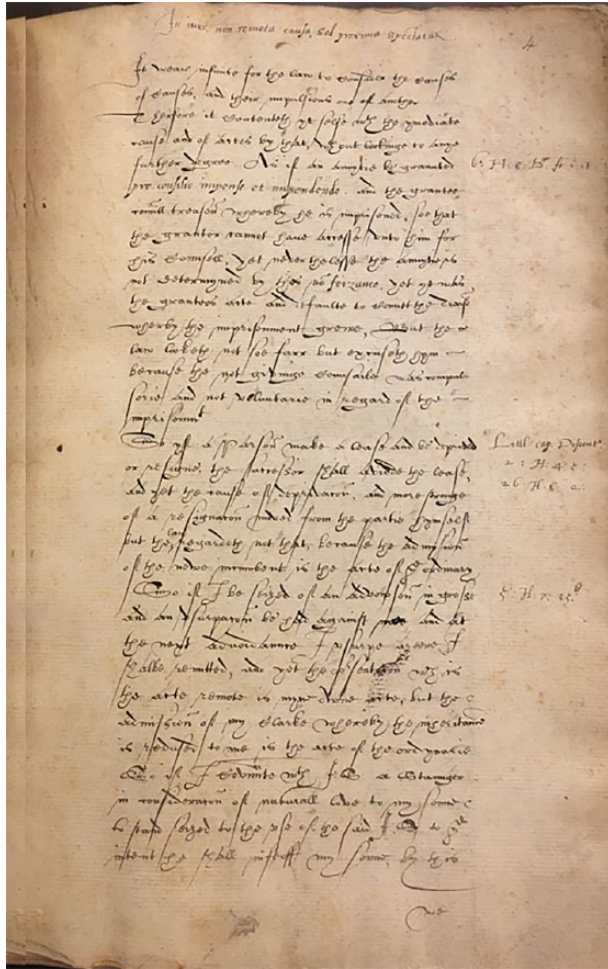 In iure non remota causa, sed proxima spectatur
4
It weare infinite for the law to consider the causes
of causes, and their impulsions one of another
Therefore it contenteth yt selfe wth the ymediate
cause and of actes by that, wthout lookinge to anye
further degree. As if an annuytie be graunted
6: H. 8.
pro consilio impenso et impendendo. and the grantee
comitt treason whereby he is imprisoned, soe that
the grantor cannot have accesse unto him for
his Counsell, yet neverthelesse the annuytie is
not determyned by this non feizance, yet it was
the grantees acte and defaulte to comitt the treason
wherby the imprisonment grewe, But the
law looketh not soe farr but excuseth hym
because the not givinge Counsaile was compul
sorie and not voluntarie in regard of the
imprisonmt
So yf a Parson make a lease and be deprived
Littl. cap. Discont
or resigne, the successor shall avoide the lease,
2: H: 4:
and yet the cause of deprivacon, and more strange
26. H. 8. 2.
of a resignacon moved from the partie hymself
but the law regardeth not that, because the admission
of the newe incumbent is the acte of ordinary
Soe if I be seized of an advowson in grosse
5: H: 7: 35
and an usurpacon be had against mee and at
the next advoidance I usurpe arere I
shalbe remitted, and yet the psentacon wch is
the acte remote is myne owne acte, but the
admission of my Clarke whereby the inheritance
is reduced to me is the acte of the ordynarie
So if I covennte wth I S a Stranger
in consideracon of naturall love to my sonne
to stand seized to the use of the said I. S. to th
intent he shall infeoff my sonne, by this